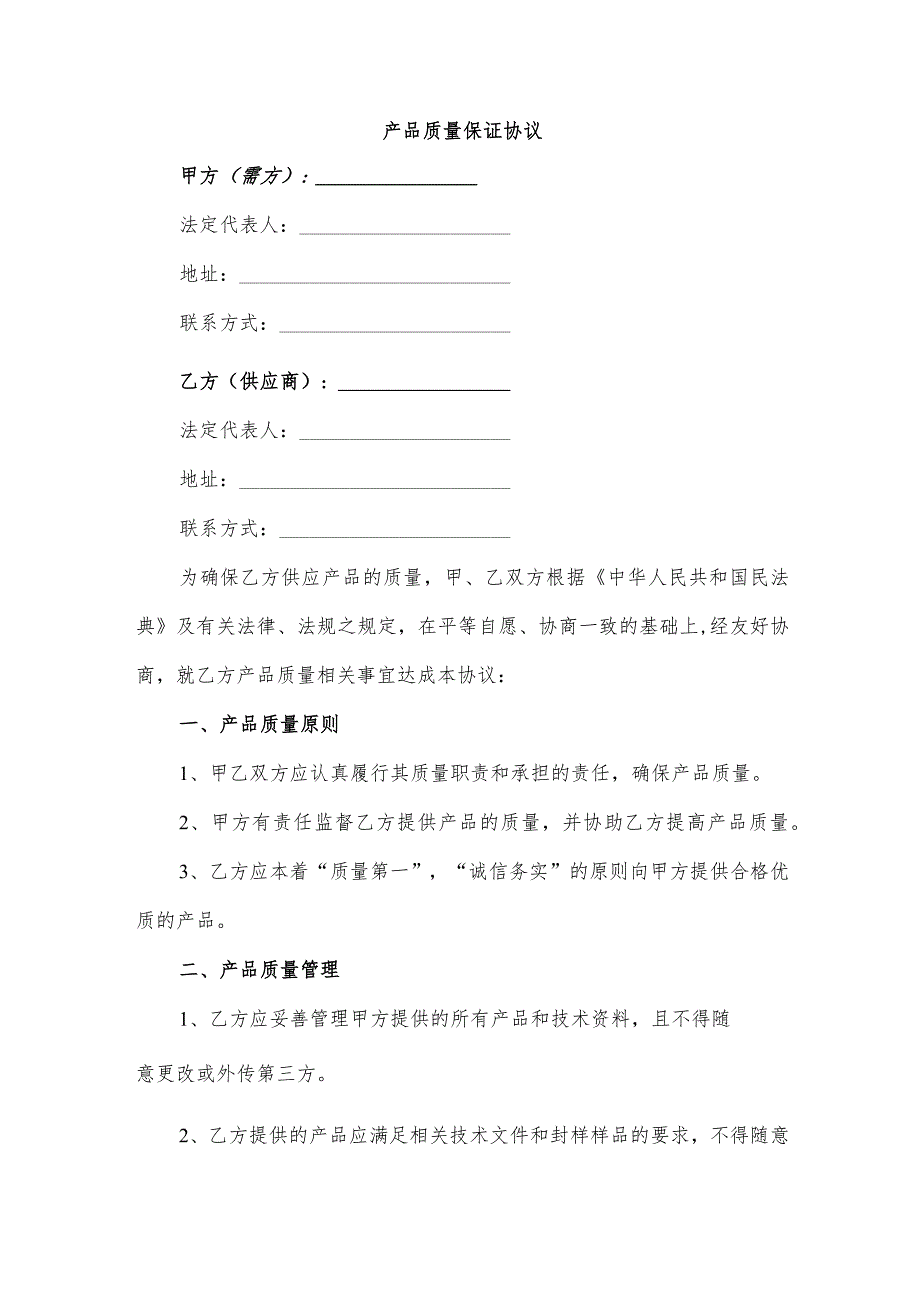 产品质量保证协议
甲方（需方）：________________
法定代表人：_____________________
地址：___________________________
联系方式：_______________________
乙方（供应商）：_________________
法定代表人：_____________________
地址：___________________________
联系方式：_______________________
为确保乙方供应产品的质量，甲、乙双方根据《中华人民共和国民法
典》及有关法律、法规之规定，在平等自愿、协商一致的基础上,经友好协
商，就乙方产品质量相关事宜达成本协议：
一、产品质量原则
1、甲乙双方应认真履行其质量职责和承担的责任，确保产品质量。
2、甲方有责任监督乙方提供产品的质量，并协助乙方提高产品质量。
3、乙方应本着“质量第一”，“诚信务实”的原则向甲方提供合格优
质的产品。
二、产品质量管理
1、乙方应妥善管理甲方提供的所有产品和技术资料，且不得随
意更改或外传第三方。
2、乙方提供的产品应满足相关技术文件和封样样品的要求，不得随意